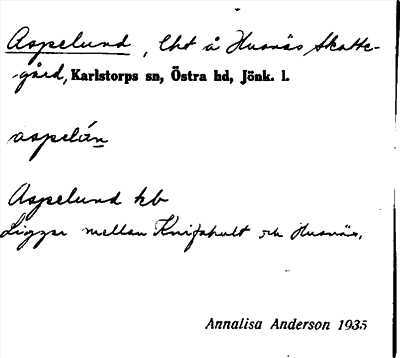 Aspelund, lht å Husnäs skatte-
-gård, Karlstorps sn, Östra hd, Jönk. l.
aspelán
Aspelund kb
Ligger mellan Knifshult och Husnäs.
Annalisa Anderson 1935